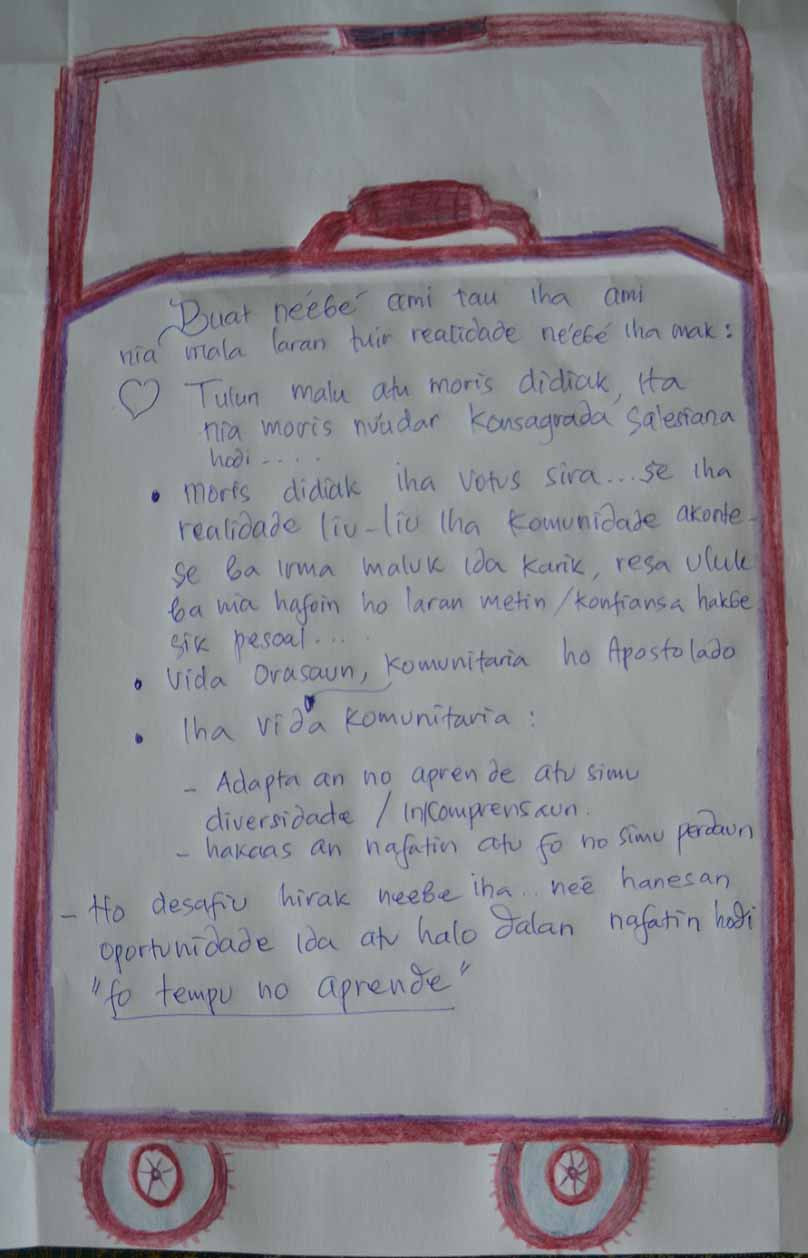 Buat ne'ebé ami tau iha ami
nia mala laran tuir realidade ne'ebé iha mak:
Tulun malu atu moris didiak, Ita
nia moris nu'udar Konsagrada Salesiana
hodi....
• Moris didiak iha Votus sira...se iha
realidade liu-liu iha Komunidade akonte-
se ba Irma maluk ida karik, resa uluk
ba nia hafoin ho laran metin/konfiansa hakbe
sik pesoal...
• Vida Orasaun, Komunitaria ho Apostolado
• Iha vida Komunitaria:
- Adapta an no aprende atu simu
diversidade / Incomprensaun.
- hakaas an nafatin atu fo no simu perdaun
- Ho desafiu hirak neebe iha.. neé hanesan
oportunidade ida atu halo dalan nafatin hodi
"fo tempu no aprende"